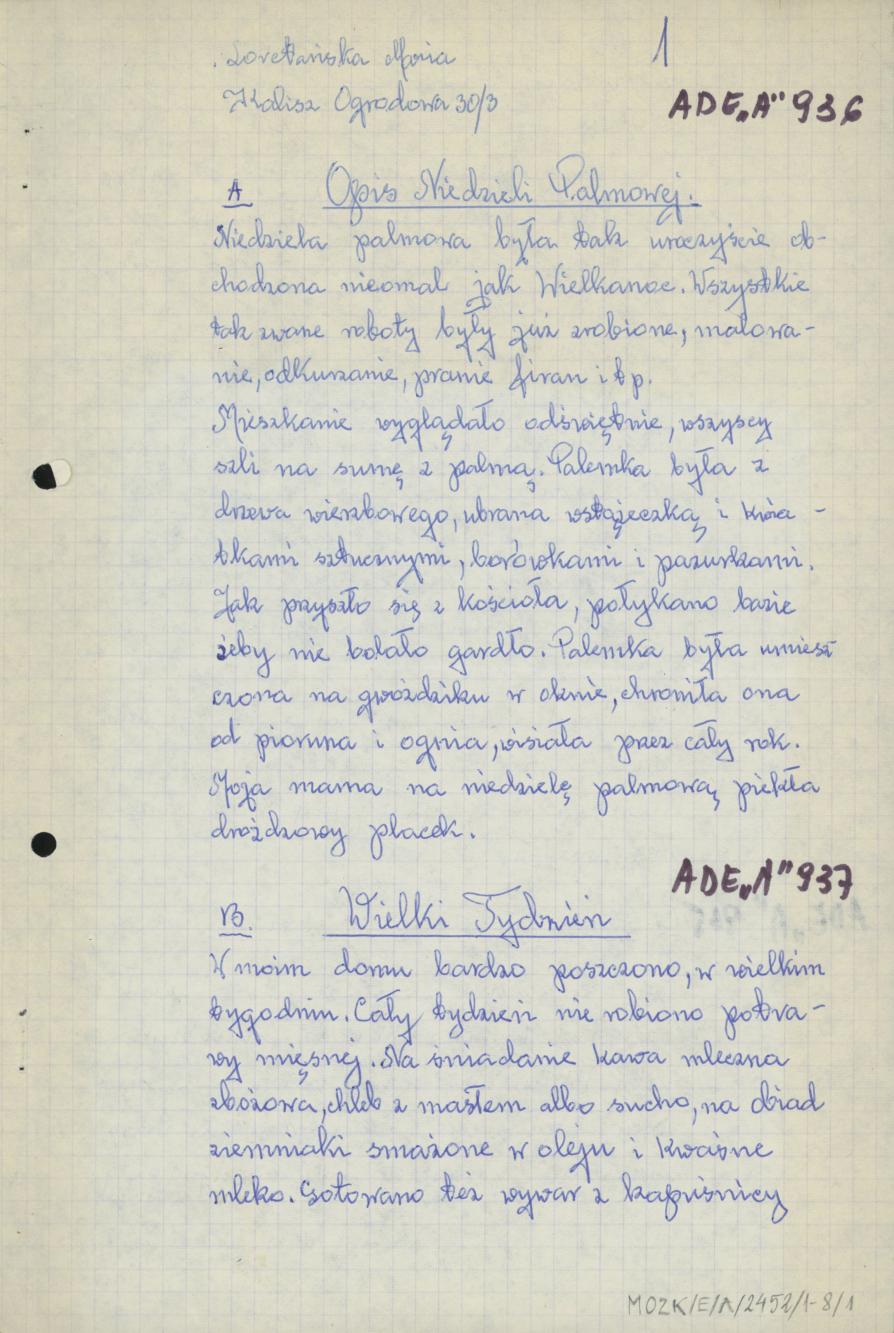 1
Loretańska Maria
Kalisz Ogrodowa 30/3
ADE„A" 936
A Opis Niedzieli Palmowej.
Niedziela palmowa była tak uroczyście ob-
chodzona nieomal jak Wielkanoc. Wszystkie
tak zwane roboty były już zrobione, malowa-
nie, odkurzanie, pranie firan i t p.
Mieszkanie wyglądało odświętnie, wszyscy
szli na sumę z palmą. Palemka była z
drzewa wierzbowego, ubrana wstążeczką i kwia-
tkami sztucznymi, borówkami i pazurkami.
Jak przyszło się z kościoła, połykano bazie
żeby nie bolało gardło. Palemka była umiesz
czona na gwoździku w oknie, chroniła ona
od pioruna i ognia, wisiała przez cały rok.
Moja mama na niedzielę palmową piekła
drożdzowy placek.
ADE„A" 937
B. Wielki Tydzień
W moim domu bardzo poszczono, w wielkim
tygodniu. Cały tydzień nie robiono potra-
wy mięsnej. Na śniadanie kawa mleczna
zbożowa, chleb z masłem albo sucho, na obiad
ziemniaki smażone w oleju i kwaśne
mleko. Gotowano też wywar z kapuśnicy
MOZK/E/A/2452/1-8/1